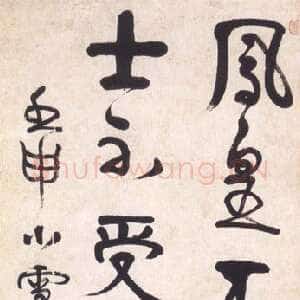 鳳皇
士 受
壬申小雪
shufawang.CN